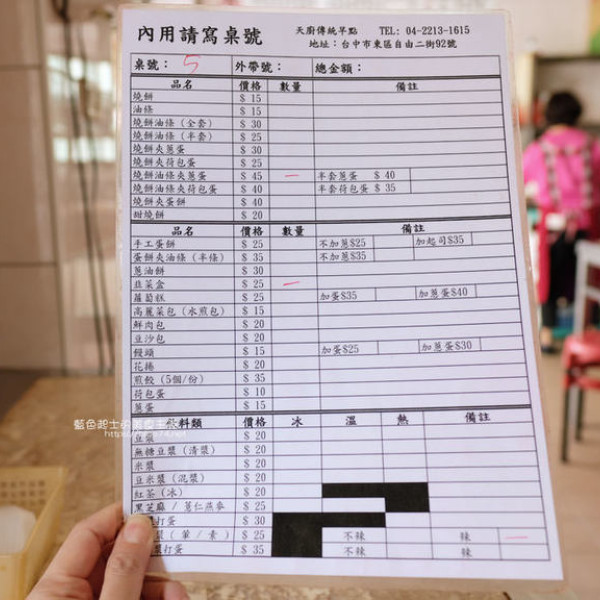 內用請寫桌號
天廚傳統早點 TEL: 04-2213-1615
地址：台中市東區自由二街92號
桌號： 5 外帶號： 總金額：
品名 價格 數量 備註
燒餅 $ 15
油條 $ 15
燒餅油條 (全套) $ 30
燒餅油條 (半套) $ 25
燒餅夾蔥蛋 $ 30
燒餅夾荷包蛋 $ 25
燒餅油條夾蔥蛋 $ 45 一 半套蔥蛋 $ 40
燒餅油條夾荷包蛋 $ 40 半套荷包蛋 $ 35
燒餅夾蛋餅 $ 40
甜燒餅 $ 20
品名 價格 數量 備註
手工蛋餅 $ 25 不加蔥$25 加起司$35
蛋餅夾油條 (半條) $ 35 不加蔥$35
蔥油餅 $ 30
韭菜盒 $ 25 一
蘿蔔糕 $ 25 加蛋$35 加蔥蛋$40
高麗菜包 (水煎包) $ 15
鮮肉包 $ 20
豆沙包 $ 20
饅頭 $ 15 加蛋$25 加蔥蛋$30
花捲 $ 20
煎餃 (5個/份) $ 35
荷包蛋 $ 10
蔥蛋 $ 15
料類 價格 冰 溫 熱 備註
豆漿 $ 20
無糖豆漿 (清漿) $ 20
米漿 $ 20
豆米漿 (混漿) $ 20
紅茶 (冰) $ 20
黑芝麻 / 薏仁燕麥 $ 25
打蛋 $ 30
(葷 / 素) $ 25 不辣 辣 一
打蛋 $ 35 不辣 辣